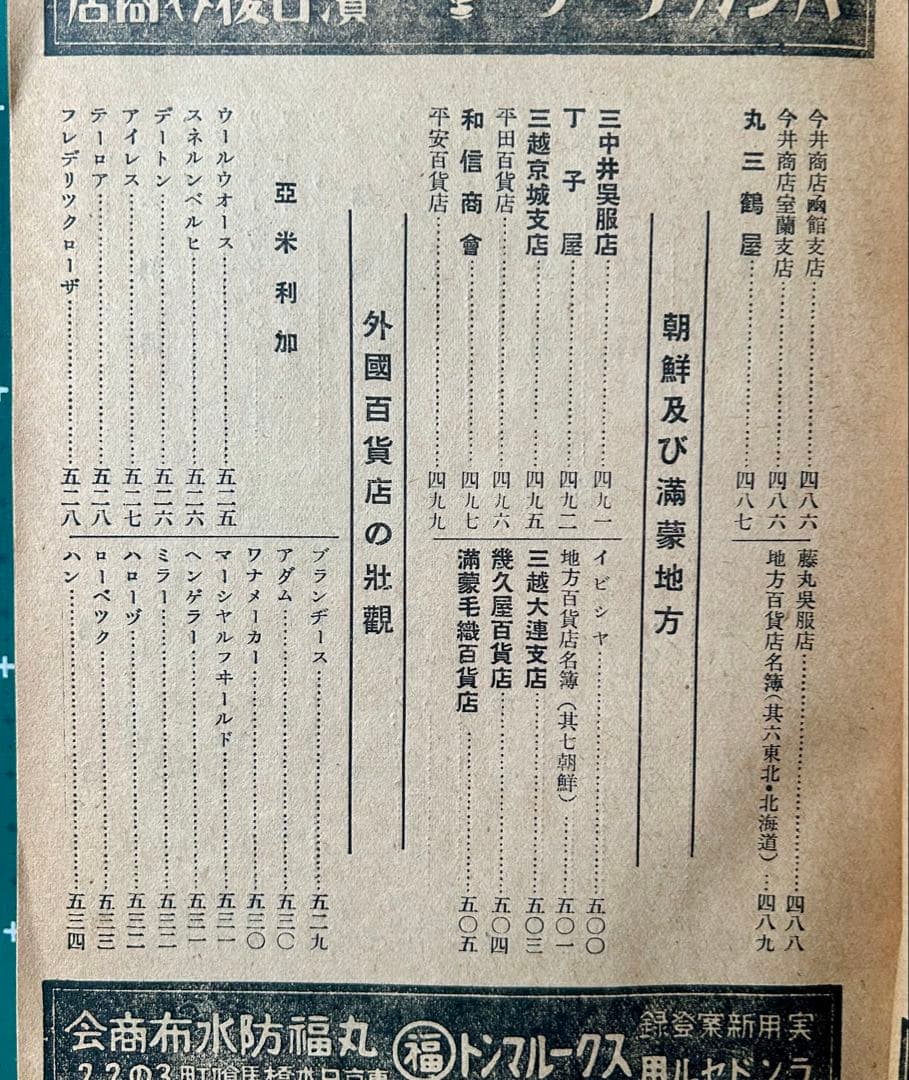 今井商店凾館支店…四八六
今井商店室蘭支店…四八六
丸三鶴屋…四八七
藤丸呉服店…四八八
地方百貨店名簿(其六東北・北海道)…四八九
朝鮮及び滿蒙地方
三中井呉服店…四九一
丁子屋…四九二
三越京城支店…四九五
平田百貨店…四九六
和信商會…四九七
平安百貨店…四九九
イビシヤ…五〇〇
地方百貨店名簿(其七朝鮮)…五〇一
三越大連支店…五〇三
幾久屋百貨店…五〇四
滿蒙毛織百貨店…五〇五
外國百貨店の壯觀
亞米利加
ウールウオース…五二五
スネルンベルヒ…五二六
デートン…五二六
アイレス…五二七
テーロア…五二八
フレデリツクローザ…五二八
ブランヂース…五二九
アダム…五三〇
ワナメーカー…五三〇
マーシヤルフヰールド…五三一
ヘンゲラー…五三一
ミラー…五三二
ハローヅ…五三二
ローベツク…五三三
ハン…五三四
実用新案登録
ランドセル用
スクールマント
福
丸福防水布商会